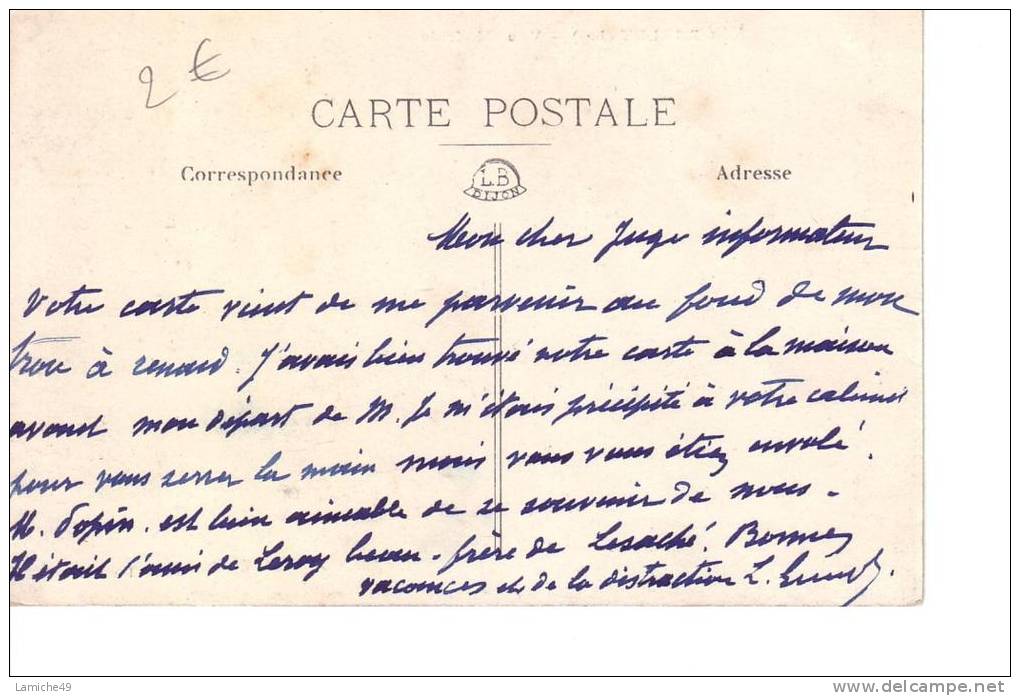 2 €
CARTE POSTALE
Correspondance
L.B
DIJON
Adresse
Mon cher Juge informateur
Votre carte vient de me parvenir au fond de mon
trou à renard. J'avais bien trouvé votre carte à la maison
avant mon départ de M. Je m'étais précipité à votre cabinet
pour vous serrer la main mais vous vous étiez envolé.
M. Popin. est bien aimable de se souvenir de nous.
Il était l'ami de Leroy beau-frère de Lesaché. Bonnes
vacances et de la distraction L.
Lamiche49
www.delcampe.net